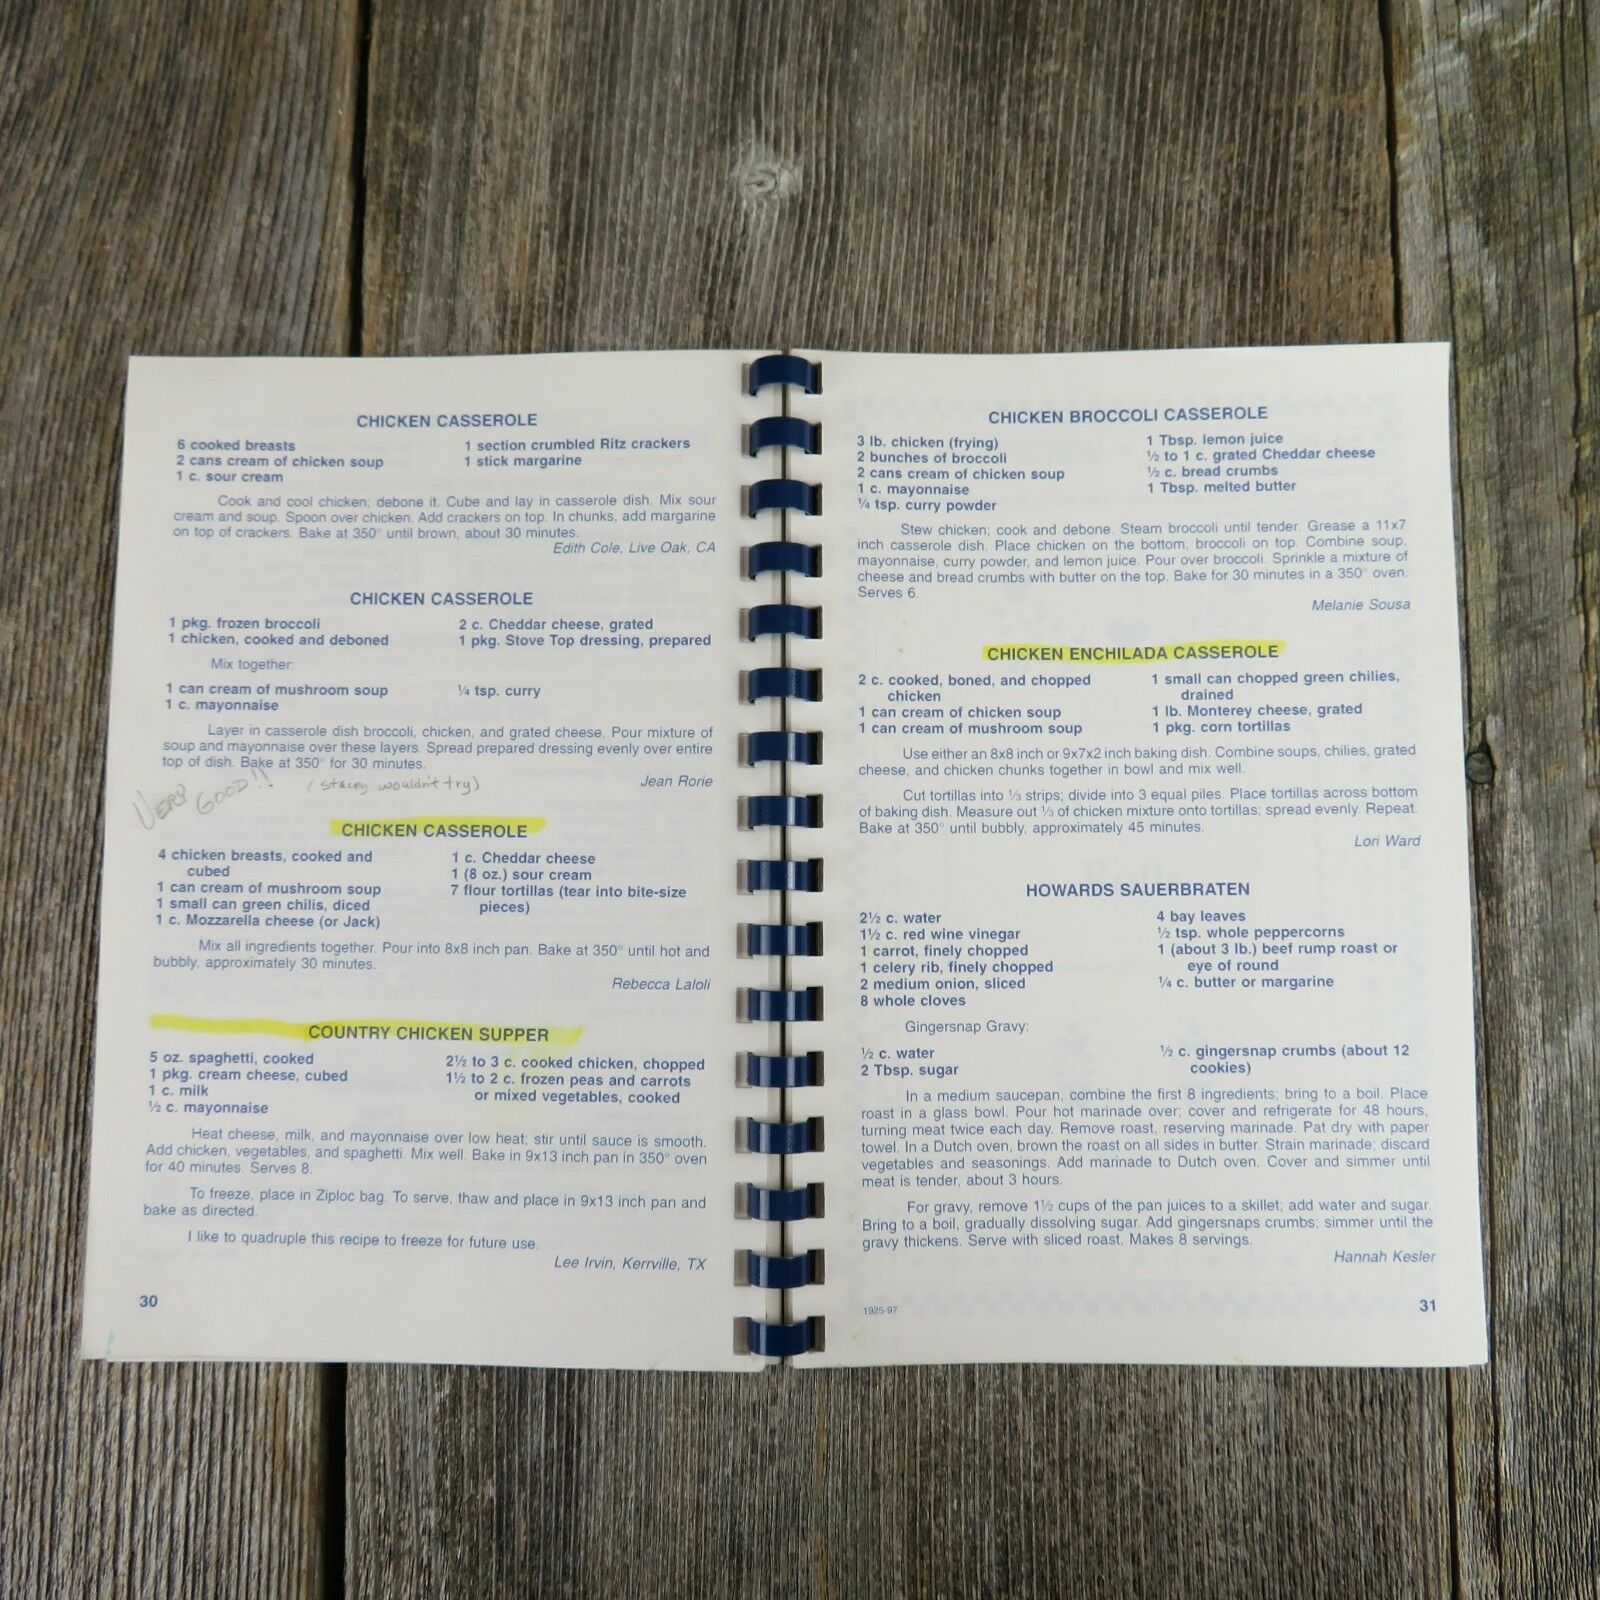 CHICKEN CASSEROLE
6 cooked breasts
2 cans cream of chicken soup
1 c. sour cream
1 section crumbled Ritz crackers
1 stick margarine
Cook and cool chicken; debone it. Cube and lay in casserole dish. Mix sour
cream and soup. Spoon over chicken. Add crackers on top. In chunks, add margarine
on top of crackers. Bake at 350° until brown, about 30 minutes.
Edith Cole, Live Oak, CA
CHICKEN CASSEROLE
1 pkg. frozen broccoli
1 chicken, cooked and deboned
2 c. Cheddar cheese, grated
1 pkg. Stove Top dressing, prepared
Mix together:
1 can cream of mushroom soup
1 c. mayonnaise
¼ tsp. curry
Layer in casserole dish broccoli, chicken, and grated cheese. Pour mixture of
soup and mayonnaise over these layers. Spread prepared dressing evenly over entire
top of dish. Bake at 350° for 30 minutes.
Jean Rorie
VERY GOOD!! (stacey wouldn't try)
CHICKEN CASSEROLE
4 chicken breasts, cooked and
cubed
1 can cream of mushroom soup
1 small can green chilis, diced
1 c. Mozzarella cheese (or Jack)
1 c. Cheddar cheese
1 (8 oz.) sour cream
7 flour tortillas (tear into bite-size
pieces)
Mix all ingredients together. Pour into 8x8 inch pan. Bake at 350° until hot and
bubbly, approximately 30 minutes.
Rebecca Laloli
COUNTRY CHICKEN SUPPER
5 oz. spaghetti, cooked
1 pkg. cream cheese, cubed
1 c. milk
½ c. mayonnaise
2½ to 3 c. cooked chicken, chopped
1½ to 2 c. frozen peas and carrots
or mixed vegetables, cooked
Heat cheese, milk, and mayonnaise over low heat; stir until sauce is smooth.
Add chicken, vegetables, and spaghetti. Mix well. Bake in 9x13 inch pan in 350° oven
for 40 minutes. Serves 8.
To freeze, place in Ziploc bag. To serve, thaw and place in 9x13 inch pan and
bake as directed.
I like to quadruple this recipe to freeze for future use.
Lee Irvin, Kerrville, TX
30
CHICKEN BROCCOLI CASSEROLE
3 lb. chicken (frying)
2 bunches of broccoli
2 cans cream of chicken soup
1 c. mayonnaise
¼ tsp. curry powder
1 Tbsp. lemon juice
½ to 1 c. grated Cheddar cheese
½ c. bread crumbs
1 Tbsp. melted butter
Stew chicken; cook and debone. Steam broccoli until tender. Grease a 11x7
inch casserole dish. Place chicken on the bottom, broccoli on top. Combine soup,
mayonnaise, curry powder, and lemon juice. Pour over broccoli. Sprinkle a mixture of
cheese and bread crumbs with butter on the top. Bake for 30 minutes in a 350° oven.
Serves 6.
Melanie Sousa
CHICKEN ENCHILADA CASSEROLE
2 c. cooked, boned, and chopped
chicken
1 can cream of chicken soup
1 can cream of mushroom soup
1 small can chopped green chilies,
drained
1 lb. Monterey cheese, grated
1 pkg. corn tortillas
Use either an 8x8 inch or 9x7x2 inch baking dish. Combine soups, chilies, grated
cheese, and chicken chunks together in bowl and mix well.
Cut tortillas into ⅓ strips; divide into 3 equal piles. Place tortillas across bottom
of baking dish. Measure out ⅓ of chicken mixture onto tortillas; spread evenly. Repeat.
Bake at 350° until bubbly, approximately 45 minutes.
Lori Ward
HOWARDS SAUERBRATEN
2½ c. water
1½ c. red wine vinegar
1 carrot, finely chopped
1 celery rib, finely chopped
2 medium onion, sliced
8 whole cloves
4 bay leaves
½ tsp. whole peppercorns
1 (about 3 lb.) beef rump roast or
eye of round
¼ c. butter or margarine
Gingersnap Gravy:
½ c. water
2 Tbsp. sugar
½ c. gingersnap crumbs (about 12
cookies)
In a medium saucepan, combine the first 8 ingredients; bring to a boil. Place
roast in a glass bowl. Pour hot marinade over; cover and refrigerate for 48 hours,
turning meat twice each day. Remove roast, reserving marinade. Pat dry with paper
towel. In a Dutch oven, brown the roast on all sides in butter. Strain marinade; discard
vegetables and seasonings. Add marinade to Dutch oven. Cover and simmer until
meat is tender, about 3 hours.
For gravy, remove 1½ cups of the pan juices to a skillet; add water and sugar.
Bring to a boil, gradually dissolving sugar. Add gingersnaps crumbs; simmer until the
gravy thickens. Serve with sliced roast. Makes 8 servings.
Hannah Kesler
1925-97
31